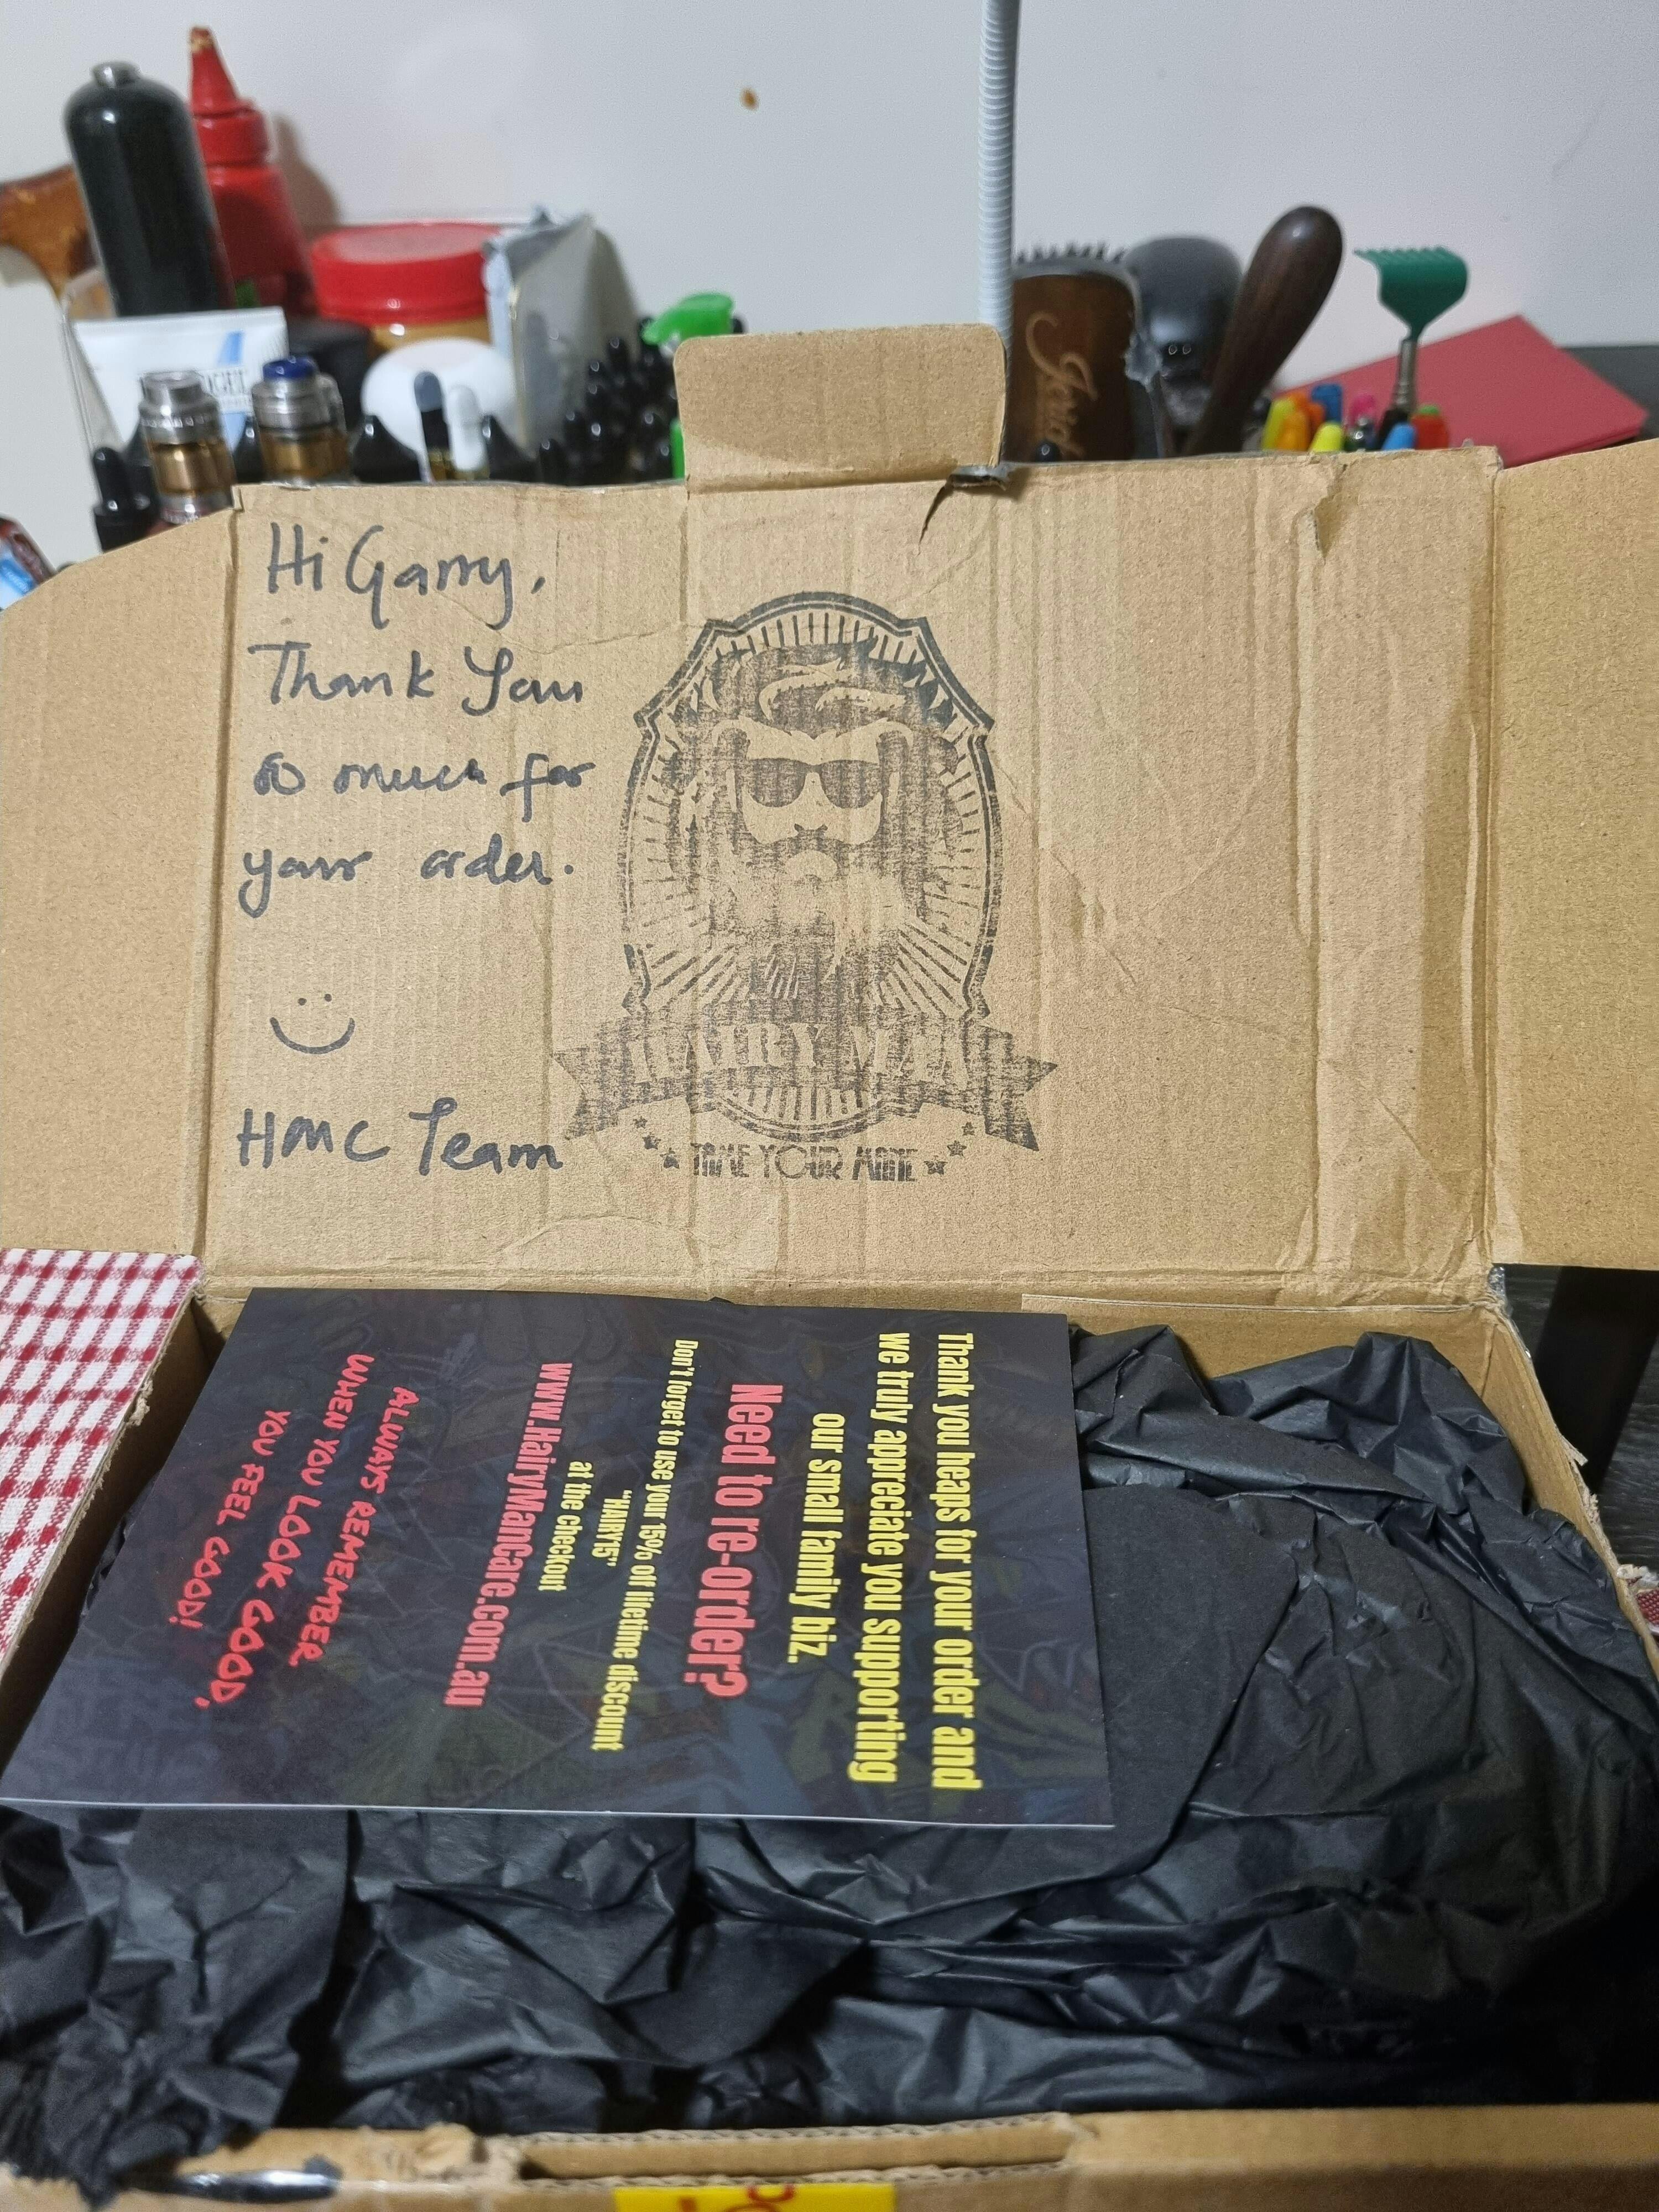 Hi Garry,
Thank You
so much for
your order.
HMC Team
HAIRY MAN
TAME YOUR MANE
Thank you heaps for your order and
we truly appreciate you supporting
our small family biz.
Need to re-order?
Don't forget to use your 15% off lifetime discount
"HAIRY15"
at the checkout
www.HairyManCare.com.au
ALWAYS REMEMBER,
WHEN YOU LOOK GOOD,
YOU FEEL GOOD!